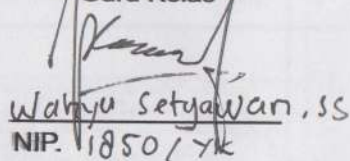 Guru Kelas
Wahyu Setyawan, SS
NIP. 1850 / YK